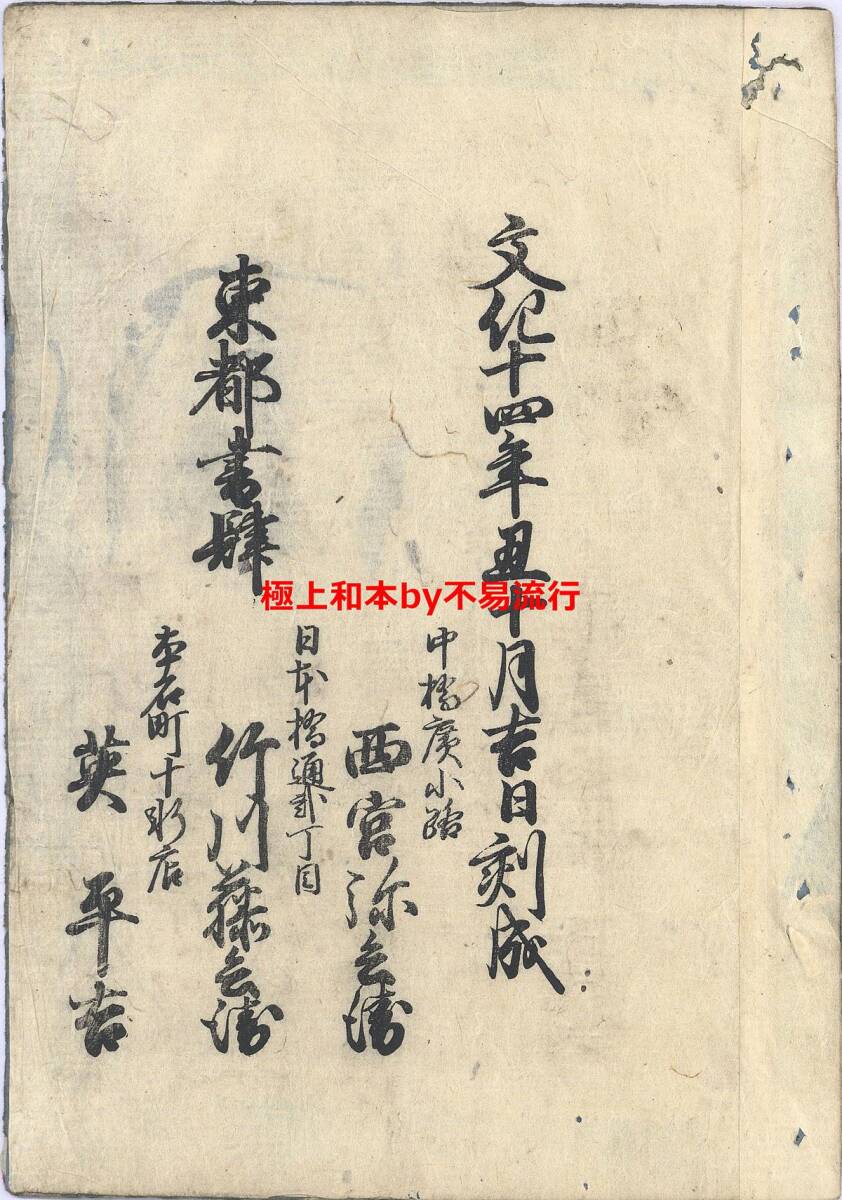 文化十四年丑十月吉日刻成
中橋廣小路
西宮弥兵衛
日本橋通貳丁目
竹川藤兵衛
本石町十軒店
英平吉
東都書肆
極上和本by不易流行